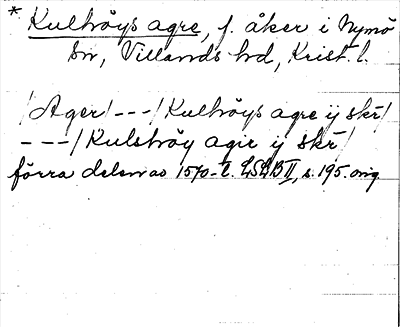 * Kulhöys agre, f. åker i Nymö
sn, Villands hd, Krist. l.
/Ager/---/Kulhöys agre ij skr̄/
---/Kulshöy agre ij skr̄/
förra delen av 1570-t. LSLB II, s. 195. orig.